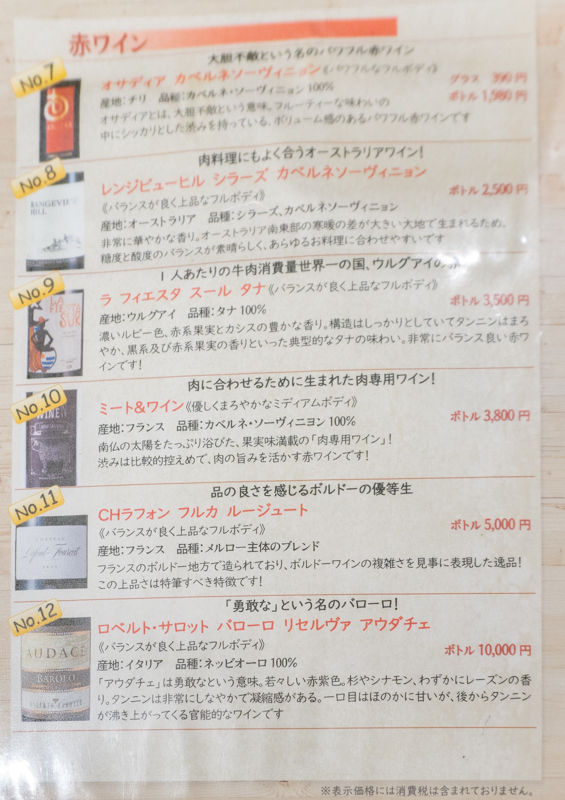 赤ワイン
大胆不敵という名のパワフル赤ワイン
No.7
オサディア カベルネソーヴィニョン《パワフルなフルボディ》
グラス 390円
産地:チリ 品種:カベルネ・ソーヴィニヨン 100%
ボトル 1,980円
オサディアとは、大胆不敵という意味。フルーティーな味わいの
中にシッカリとした渋みを持っている、ボリューム感のあるパワフル赤ワインです
肉料理にもよく合うオーストラリアワイン!
No.8
レンジビューヒル シラーズ カベルネソーヴィニョン
《バランスが良く上品なフルボディ》
ボトル 2,500円
産地:オーストラリア 品種:シラーズ、カベルネソーヴィニョン
非常に華やかな香り。オーストラリア南東部の寒暖の差が大きい大地で生まれるため、
糖度と酸度のバランスが素晴らしく、あらゆるお料理に合わせやすいです
RANGEVIEW
HILL
1人あたりの牛肉消費量世界一の国、ウルグアイの赤
No.9
ラ フィエスタ スール タナ《バランスが良く上品なフルボディ》
ボトル 3,500円
産地:ウルグアイ 品種:タナ 100%
濃いルビー色、赤系果実とカシスの豊かな香り。構造はしっかりとしていてタンニンはまろ
やか、黒系及び赤系果実の香りといった典型的なタナの味わい。非常にバランス良い赤ワ
インです!
肉に合わせるために生まれた肉専用ワイン!
No.10
ミート&ワイン《優しくまろやかなミディアムボディ》
ボトル 3,800円
産地:フランス 品種:カベルネ・ソーヴィニヨン 100%
南仏の太陽をたっぷり浴びた、果実味満載の「肉専用ワイン」!
渋みは比較的控えめで、肉の旨みを活かす赤ワインです!
WINE
品の良さを感じるボルドーの優等生
No.11
CHラフォン フルカ ルージュート
《バランスが良く上品なフルボディ》
ボトル 5,000円
産地:フランス 品種:メルロー主体のブレンド
フランスのボルドー地方で造られており、ボルドーワインの複雑さを見事に表現した逸品!
この上品さは特筆すべき特徴です!
「勇敢な」という名のバローロ!
No.12
ロベルト・サロット バローロ リセルヴァ アウダチェ
《バランスが良く上品なフルボディ》
ボトル 10,000円
産地:イタリア 品種:ネッビオーロ 100%
「アウダチェ」は勇敢なという意味。若々しい赤紫色。杉やシナモン、わずかにレーズンの香
り。タンニンは非常にしなやかで凝縮感がある。一口目はほのかに甘いが、後からタンニン
が沸き上がってくる官能的なワインです
AUDACE
BAROLO
※表示価格には消費税は含まれておりません。